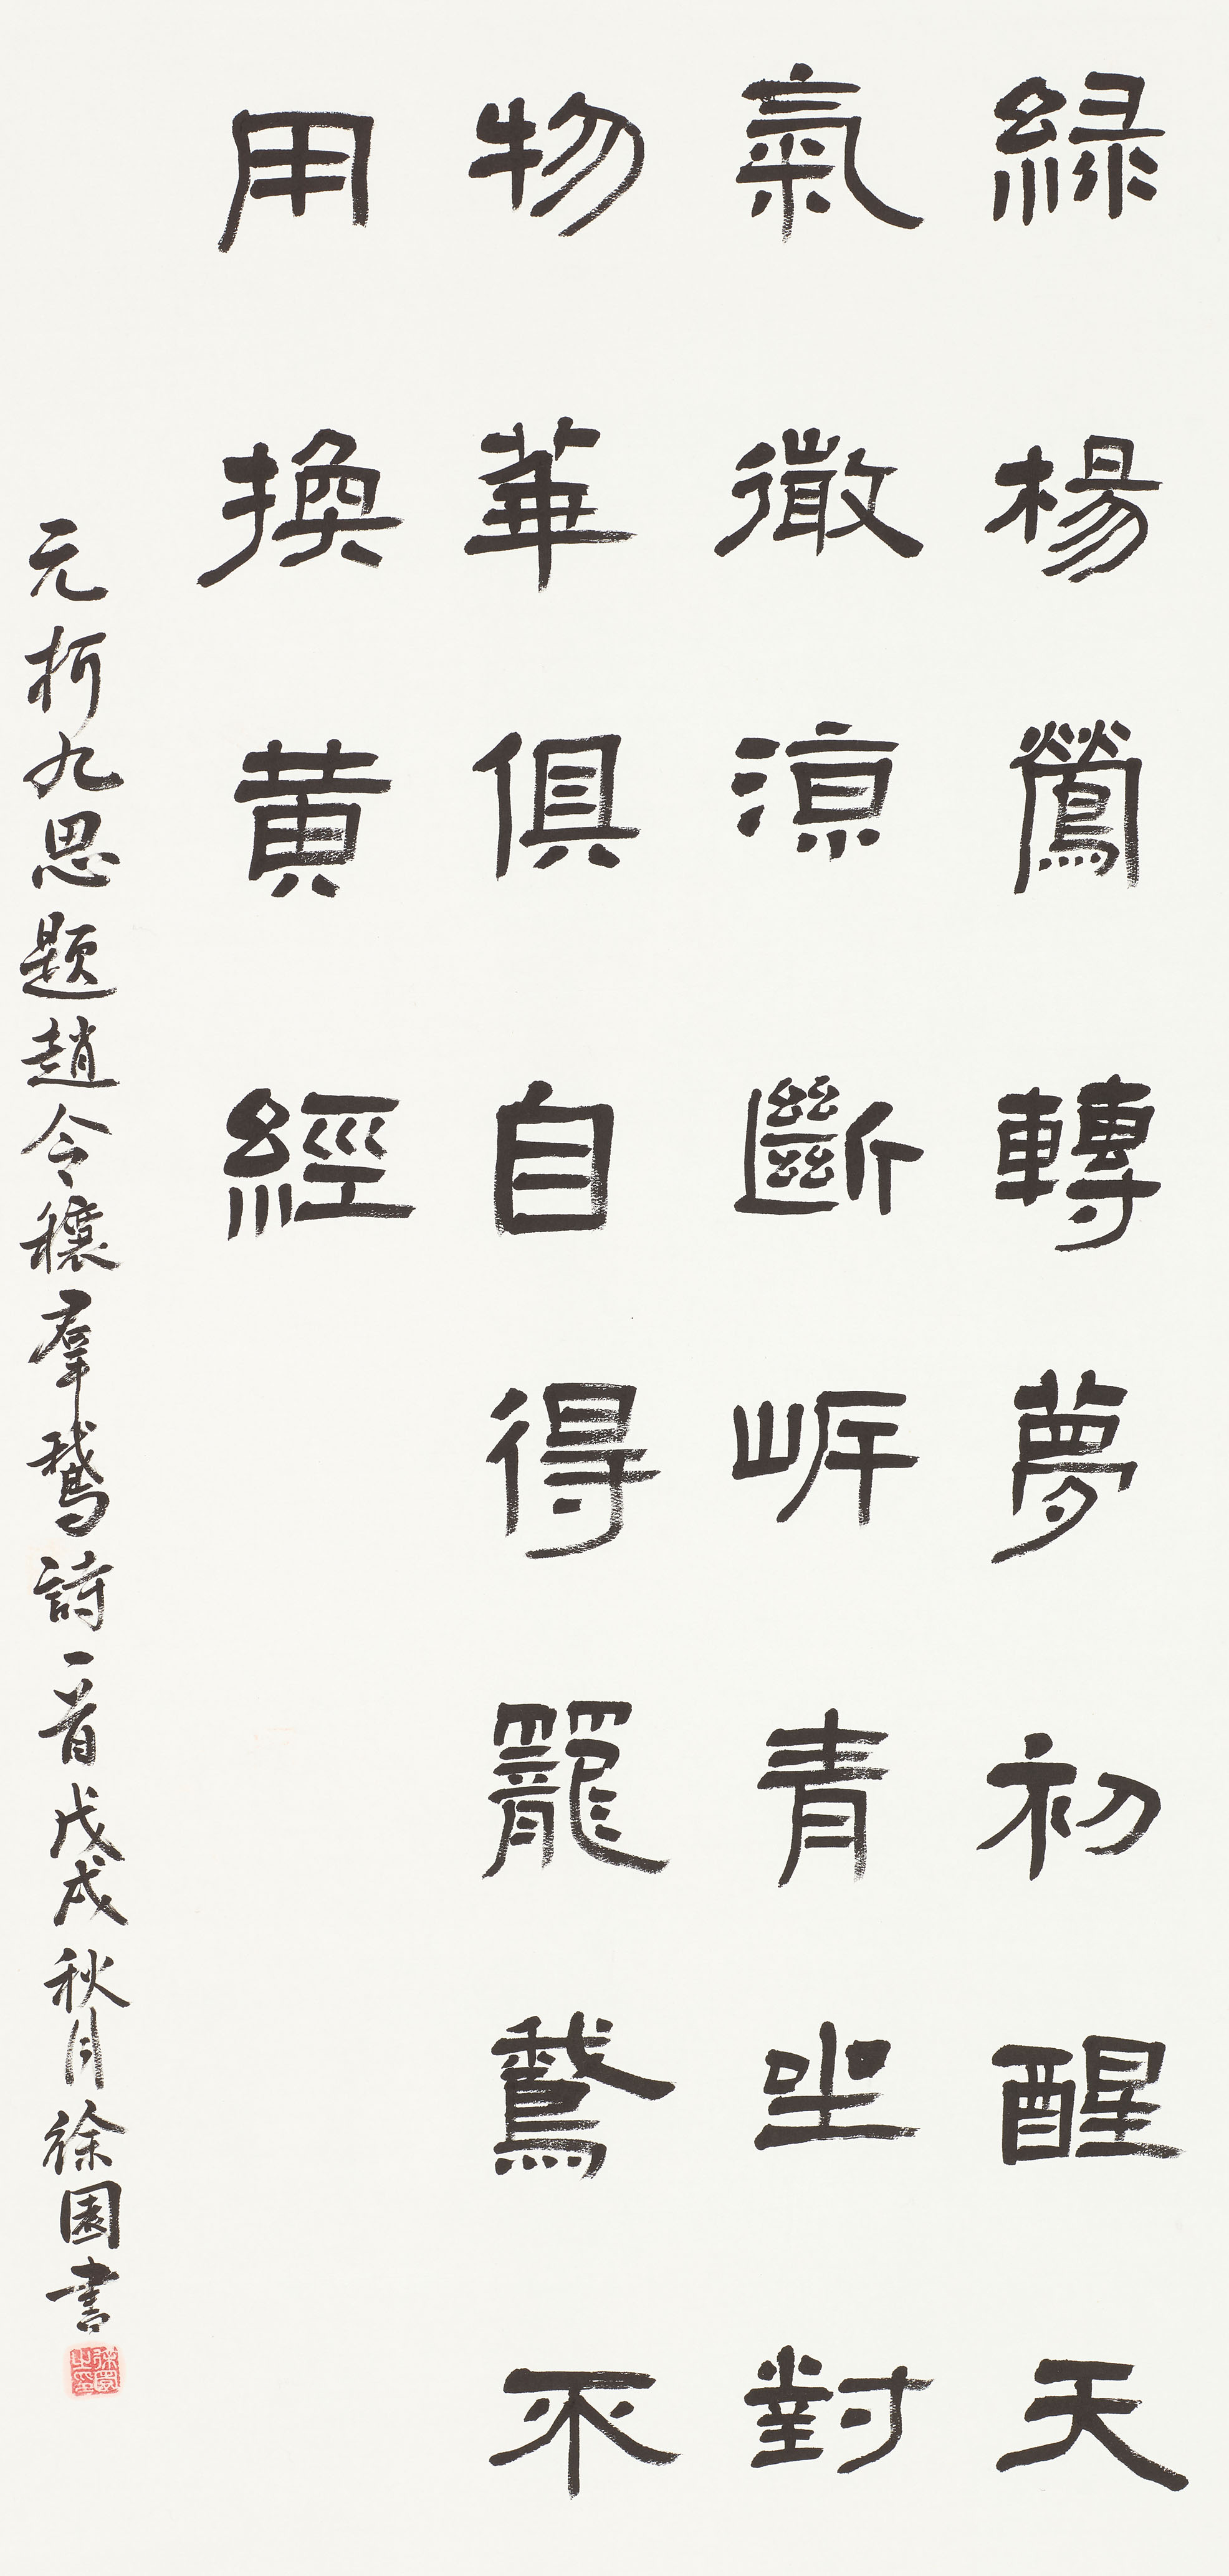 綠楊鶯轉夢初醒天
氣微涼斷岸青坐對
物華俱自得籠鵞不
用換黃經
元柯九思題趙令穰羣鵞詩一首戊戌秋月徐園書
徐園之印